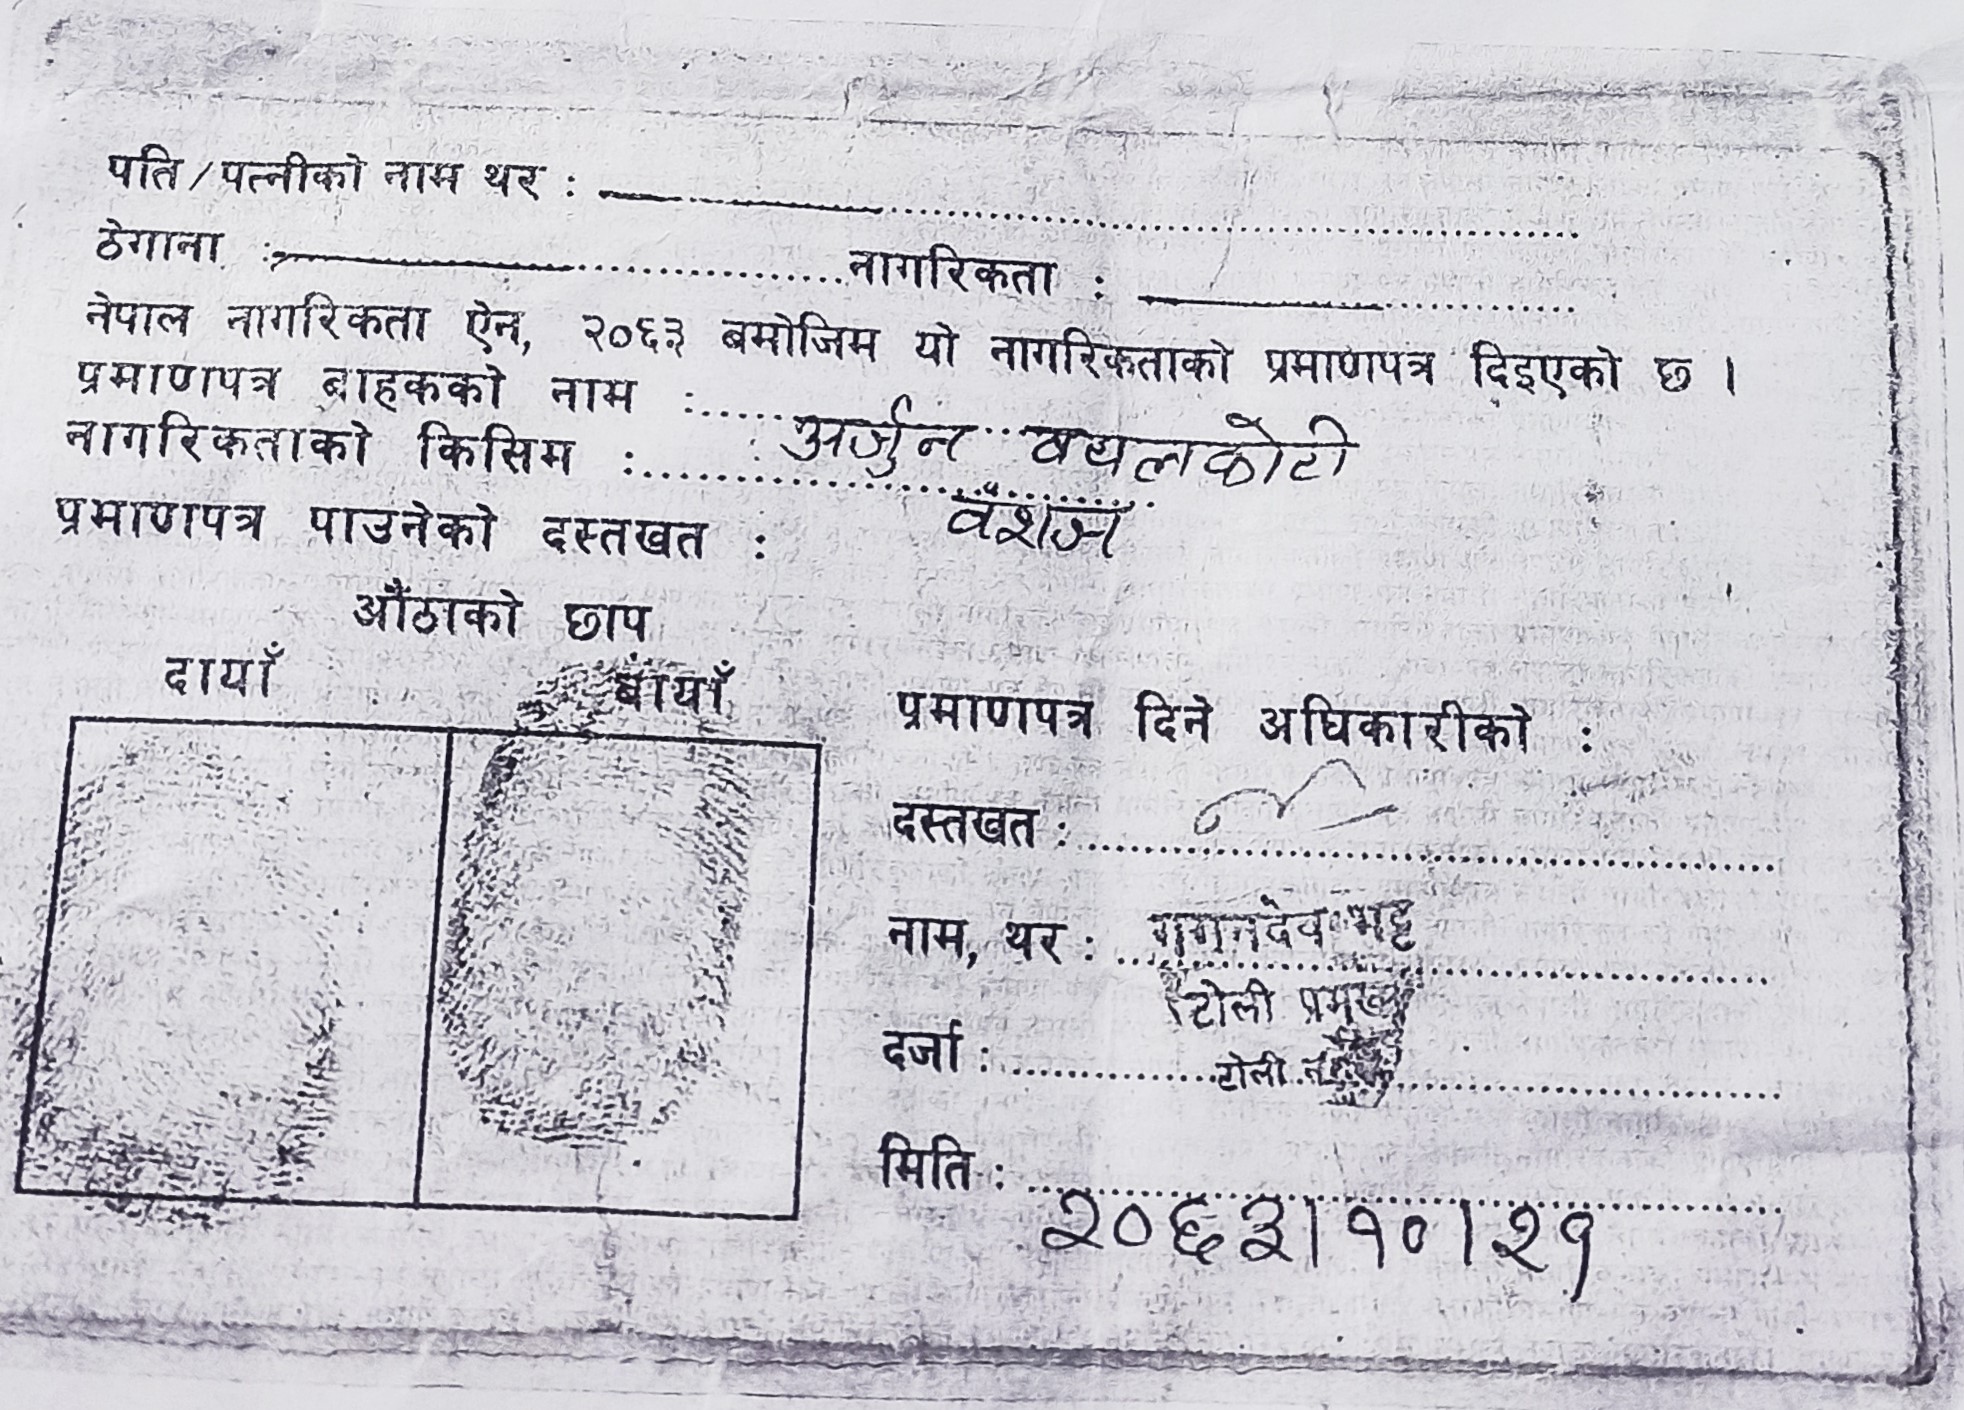 पति/पत्नीको नाम थर :
ठेगाना : नागरिकता :
नेपाल नागरिकता ऐन, २०६३ बमोजिम यो नागरिकताको प्रमाणपत्र दिइएको छ ।
प्रमाणपत्र बाहकको नाम : अर्जुन वयलकोटी
नागरिकताको किसिम : वंशज
प्रमाणपत्र पाउनेको दस्तखत :
औंठाको छाप
दायाँ बायाँ
प्रमाणपत्र दिने अधिकारीको :
दस्तखत :
नाम, थर : गगनदेव भट्ट
टोली प्रमुख
दर्जा : टोली
मिति :
२०६३।१०।२१